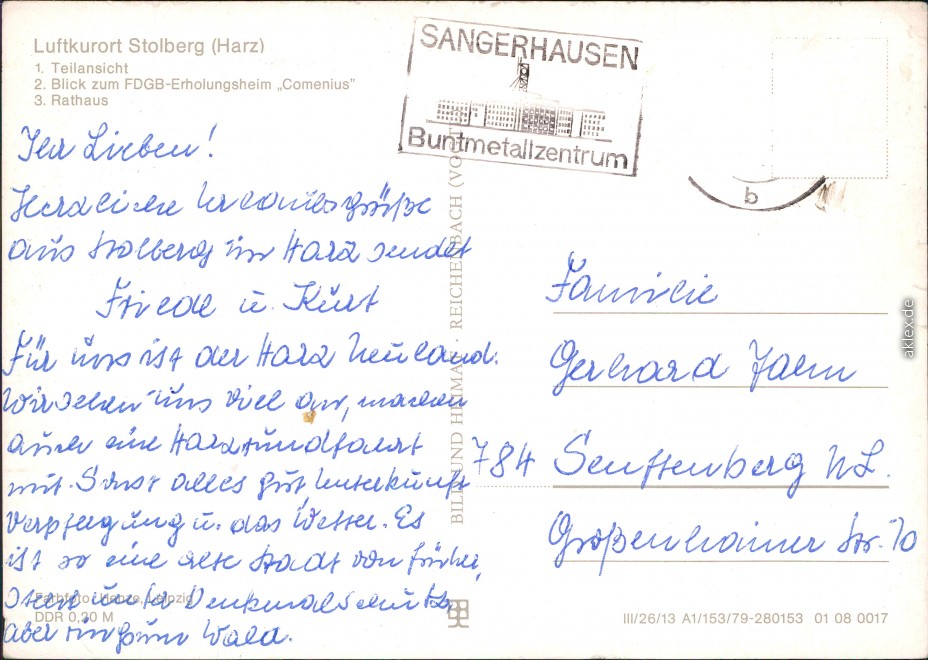 Luftkurort Stolberg (Harz)
1. Teilansicht
2. Blick zum FDGB-Erholungsheim „Comenius”
3. Rathaus
SANGERHAUSEN
Buntmetallzentrum
b
Ihr Lieben!
Herzliche Urlaubsgrüße
aus Stolberg im Harz sendet
Friedel u. Kurt
Für uns ist der Harz Neuland.
Wir sehen uns viel an, machen
auch eine Harzrundfahrt
mit. Sonst alles gut, Unterkunft
Verpflegung u. das Wetter. Es
ist so eine alte Stadt von früher,
steht unter Denkmalschutz,
aber ringsum Wald.
Farbfoto: Leipzig
DDR 0,20 M
BILD UND HEIMAT REICHENBACH
Familie
Gerhard Jahn
784 Senftenberg NL.
Großenhainer Str. 70
III/26/13 A1/153/79-280153 01 08 0017
aklex.de